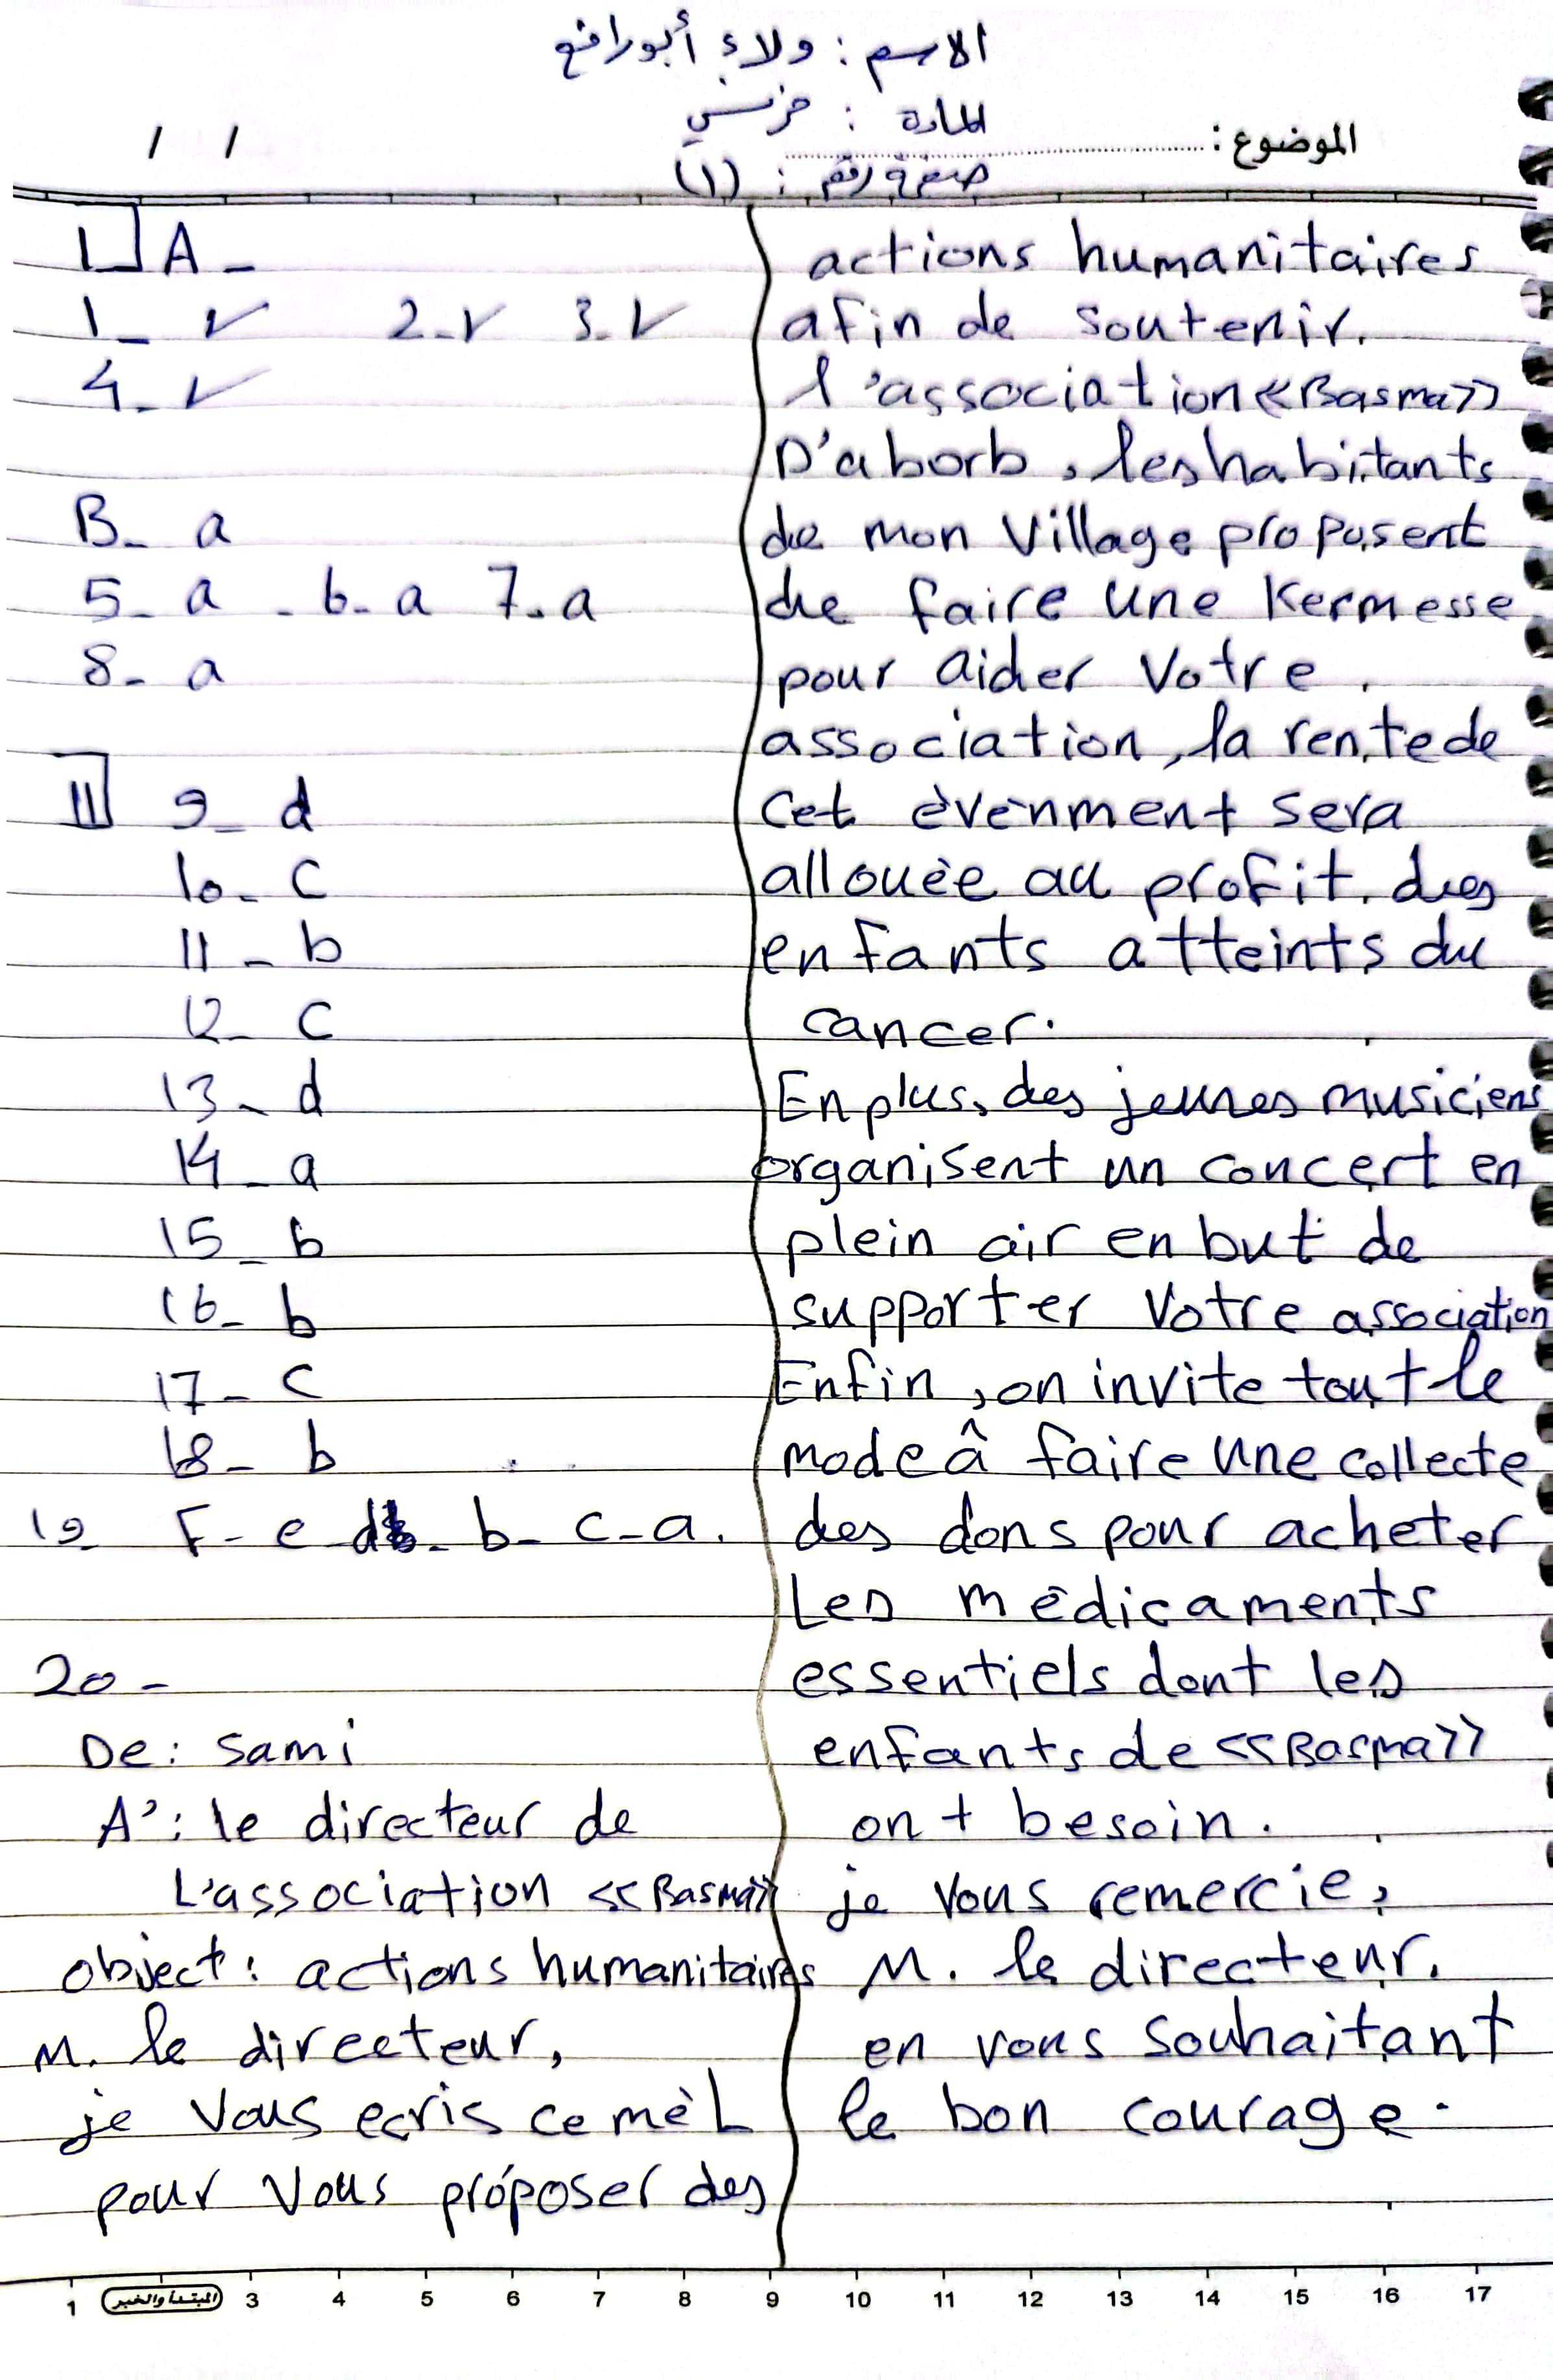 الاسم : ولاء أبورافع
المادة : فرنسي
الموضوع :
/ /
صفحة رقم : (١)
I A -
1- ✓ 2-✓ 3-✓
4-✓
B- a
5- a - 6- a 7- a
8- a
II 9- d
10- c
11- b
12- c
13- d
14- a
15- b
16- b
17- c
18- b
19- F- e- d- b- c-a.
20-
De: Sami
A': le directeur de
L'association <<Basma>>
object: actions humanitaires
M. le directeur,
je vous ecris ce mèL
pour vous proposer des
actions humanitaires
afin de soutenir.
l'association <<Basma>>
D'aborb, les habitants
de mon village proposent
de faire une kermesse
pour aider votre
association, la rente de
cet évènment sera
allouèe au profit des
enfants atteints du
cancer.
En plus, des jeunes musiciens
organisent un concert en
plein air en but de
supporter votre association
Enfin, on invite tout le
mode â faire une collecte
des dons pour acheter
Les mèdicaments
essentiels dont les
enfants de <<Basma>>
ont besoin.
je vous remercie,
M. le directeur.
en vous souhaitant
le bon courage.
1 المبتدأ والخبر 3 4 5 6 7 8 9 10 11 12 13 14 15 16 17